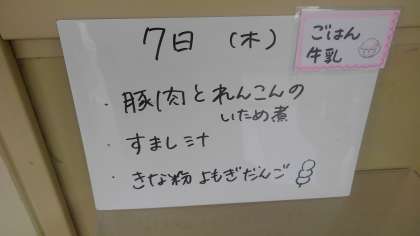 7日（木）
ごはん
牛乳
・豚肉とれんこんの
いため煮
・すまし汁
・きな粉よもぎだんご